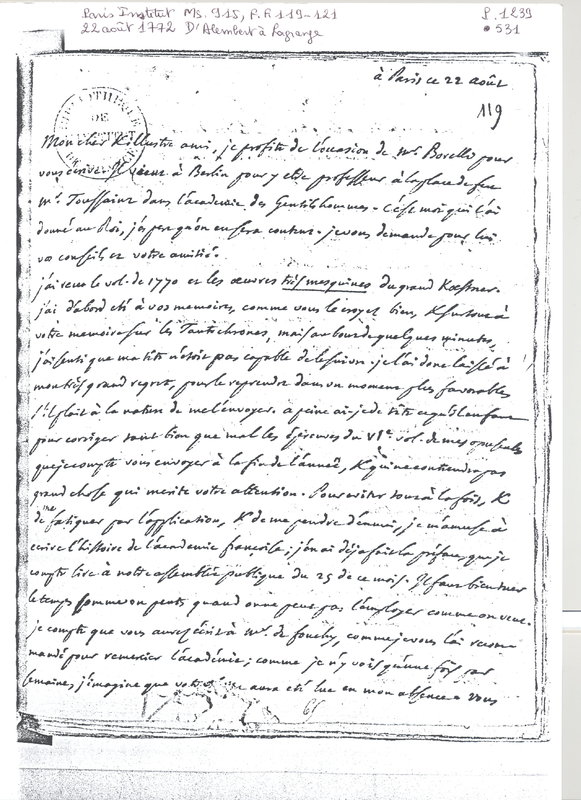 Paris Institut Ms. 915, f.f 119-121
22 août 1772 D'Alembert à Lagrange
p. 1239
• 531
à Paris ce 22 août
119
Mon cher & illustre ami, je profite de l'occasion de mr. Borelli pour
vous écrire. Il vient à Berlin pour y être professeur à la place de feu
mr. Toussaint dans l'académie des Gentilshommes. C'est moi qui l'ai
donné au Roi, j'espere qu'on en sera content. je vous demande pour lui
vos conseils et votre amitié.
j'ai reçu le vol. de 1770 et les œuvres très mesquines du grand Kaestner.
j'ai d'abord été à vos memoires, comme vous le croyez bien, & surtout à
votre memoire sur les Tautochrones, mais au bout de quelques minutes,
j'ai senti que ma tête n'étoit pas capable de le suivre. je l'ai donc laissé à
mon très grand regret, pour le reprendre dans un moment plus favorable
s'il plait à la nature de me l'envoyer. a peine ai-je de tête ce qu'il en faut
pour corriger tant bien que mal les épreuves du VIe. vol. de mes opuscules
que je compte vous envoyer à la fin de l'année, & qui ne contiendra pas
grand chose qui merite votre attention. Pour eviter tout à la fois, &
de me fatiguer par l'application, & de me pendre d'ennui, je m'amuse à
ecrire l'histoire de l'academie françoise; j'en ai déja fait la préface, que je
compte lire à notre assemblée publique du 25 de ce mois. Il faut bien tuer
le temps comme on peut, quand on ne peut pas l'employer comme on veut.
je compte que vous aurez écrit à mr. de fouchy, comme je vous l'ai recom
mandé pour remercier l'académie; comme je n'y vois qu'une fois par
semaine, j'imagine que votre aura été lue en mon absence. Vous